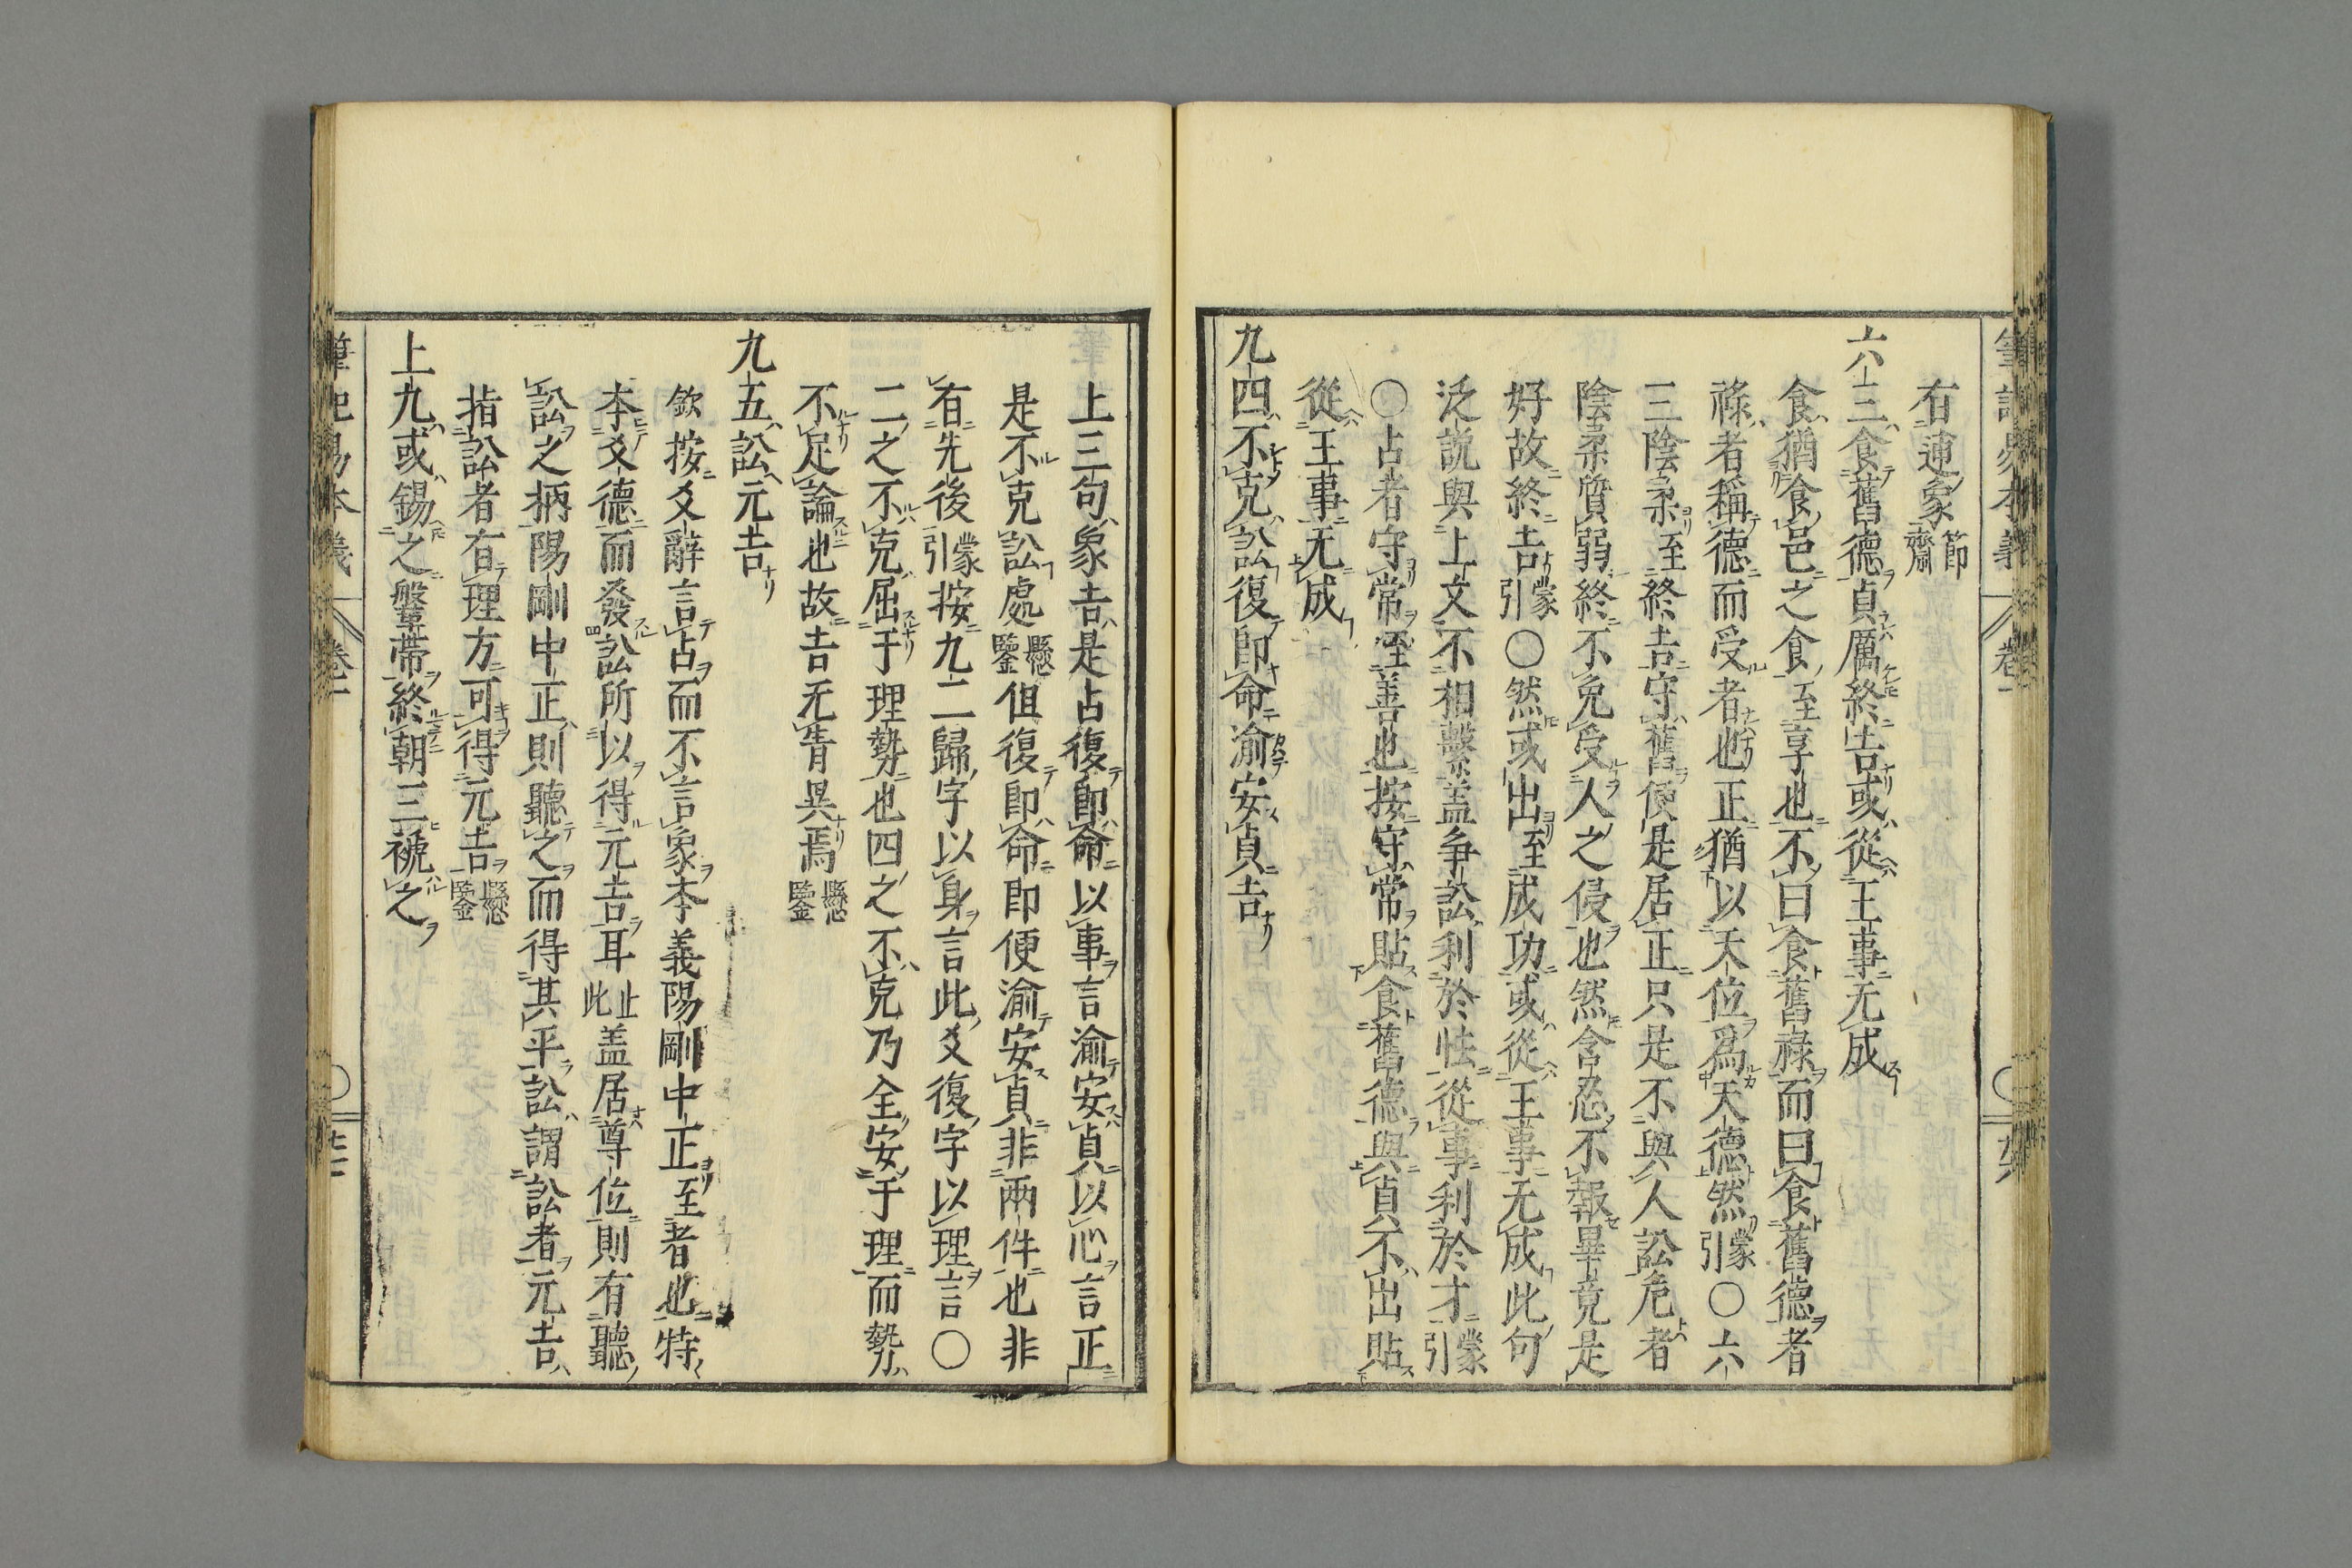 有連象節齋
六三食舊德貞厲終吉或從王事无成
食猶食邑之食至享也不曰食舊祿而曰食舊德者
祿者稱德而受者也正猶以天位爲天德然蒙引〇六
三陰柔至終吉守舊便是居正只是不與人訟危者
陰柔質弱終不免受人之侵也然含忍不報畢竟是
好故終吉蒙引〇然或出至成功或從王事无成此句
泛說與上文不相繫盖爭訟利於怯從事利於才蒙引
〇占者守常至善也按守常貼食舊德與貞不出貼
從王事无成
九四不克訟復即命渝安貞吉
上三句象吉是占復即命以事言渝安貞以心言正
是不克訟處懸鑒但復即命即便渝安貞非兩件也非
有先後蒙引按九二歸字以身言此爻復字以理言〇
二之不克屈于理勢也四之不克乃全安于理而勢
不足論也故吉无眚異焉懸鑒
九五訟元吉
欽按爻辭言占而不言象本義陽剛中正至者也特
本爻德而發訟所以得元吉耳止此盖居尊位則有聽
訟之柄陽剛中正則聽之而得其平訟謂訟者元吉
指訟者有理方可得元吉懸鑒
上九或錫之鞶帶終朝三褫之